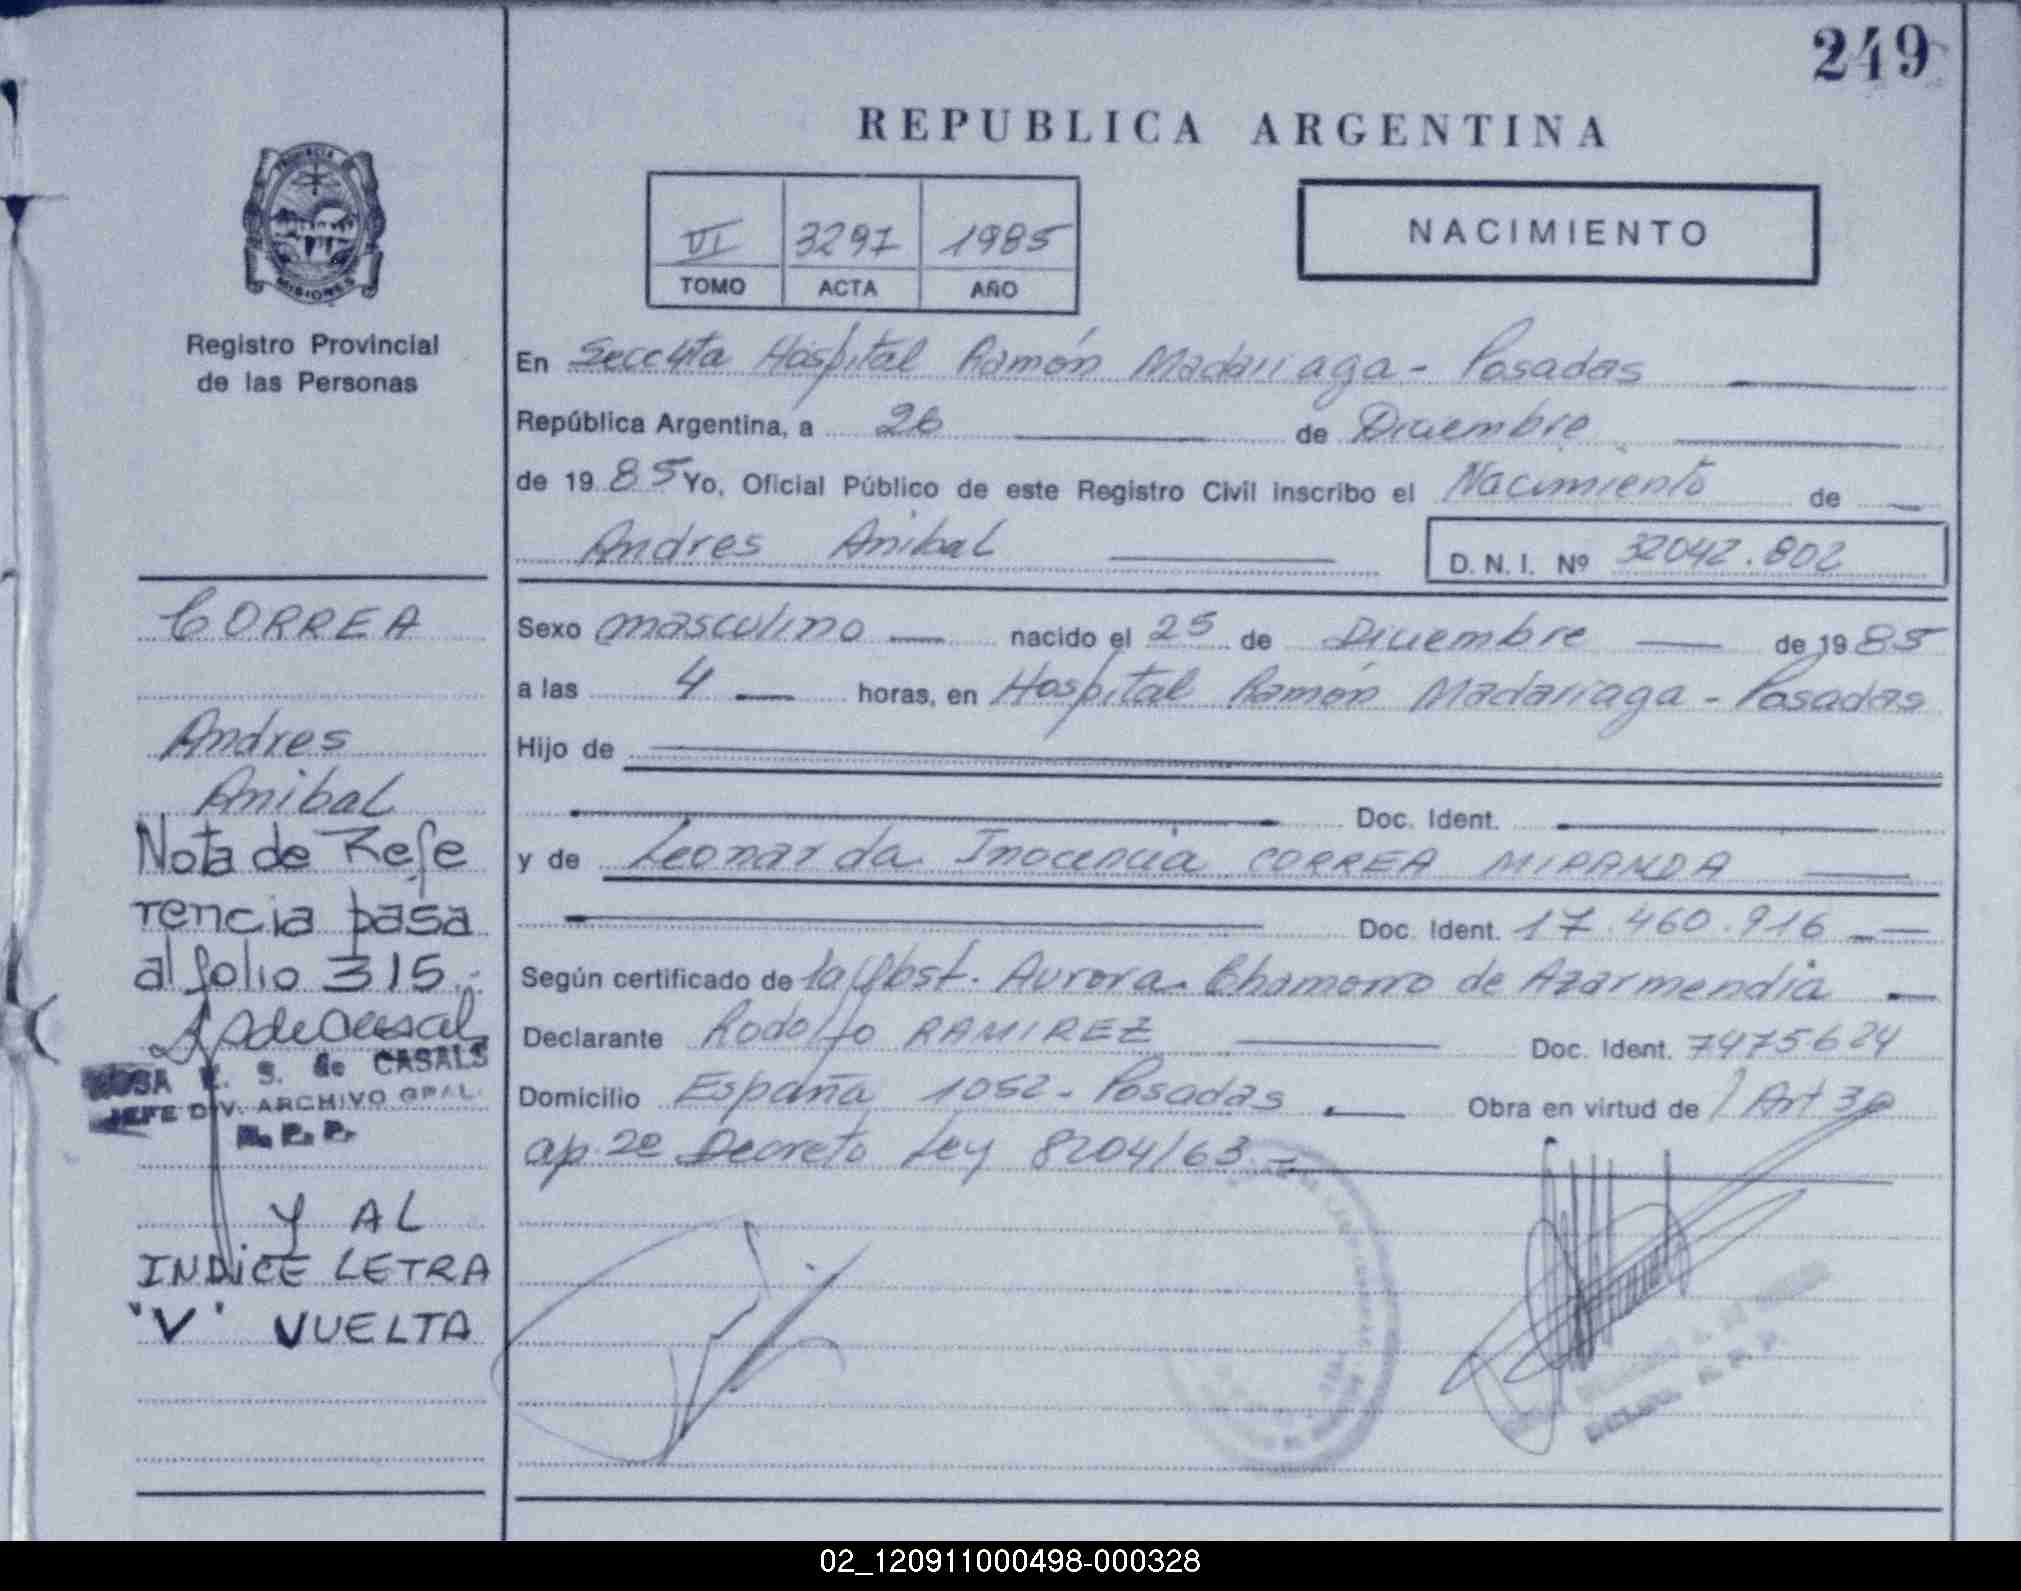 249
REPUBLICA ARGENTINA
PROVINCIA DE
MISIONES
Registro Provincial
de las Personas
VI 3297 1985
TOMO ACTA AÑO
NACIMIENTO
En Secc 4ta Hospital Ramón Madariaga - Posadas
República Argentina, a 26 de Diciembre
de 1985 Yo, Oficial Público de este Registro Civil inscribo el Nacimiento de
Andres Anibal
D. N. I. Nº 32042.802
Sexo masculino nacido el 25 de Diciembre de 1985
a las 4 horas, en Hospital Ramón Madariaga - Posadas
Hijo de
Doc. Ident.
y de Leonarda Inocencia CORREA MIRANDA
Doc. Ident. 17.460.916
Según certificado de la Obst. Aurora Chamorro de Azarmendia
Declarante Rodolfo RAMIREZ Doc. Ident. 7475624
Domicilio España 1052 - Posadas Obra en virtud de / Art 3º
ap. 2º Decreto Ley 8204/63.-
CORREA
Andres
Anibal
Nota de Refe
rencia pasa
al folio 315.
ROSA E. S. de CASALS
JEFE DIV. ARCHIVO GRAL.
R. P. P.
Y AL
INDICE LETRA
"V" VUELTA
02_120911000498-000328